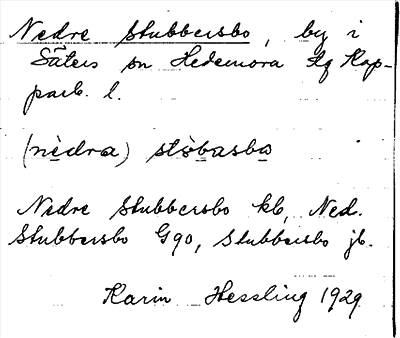 Nedre Stubbersbo, by i
Säters sn Hedemora tg Kop-
parb. l.
(nedra) stobasbo
Nedre Stubbersbo kb, Ned.
Stubbersbo G90, Stubbersbo jb.
Karin Hessling 1929